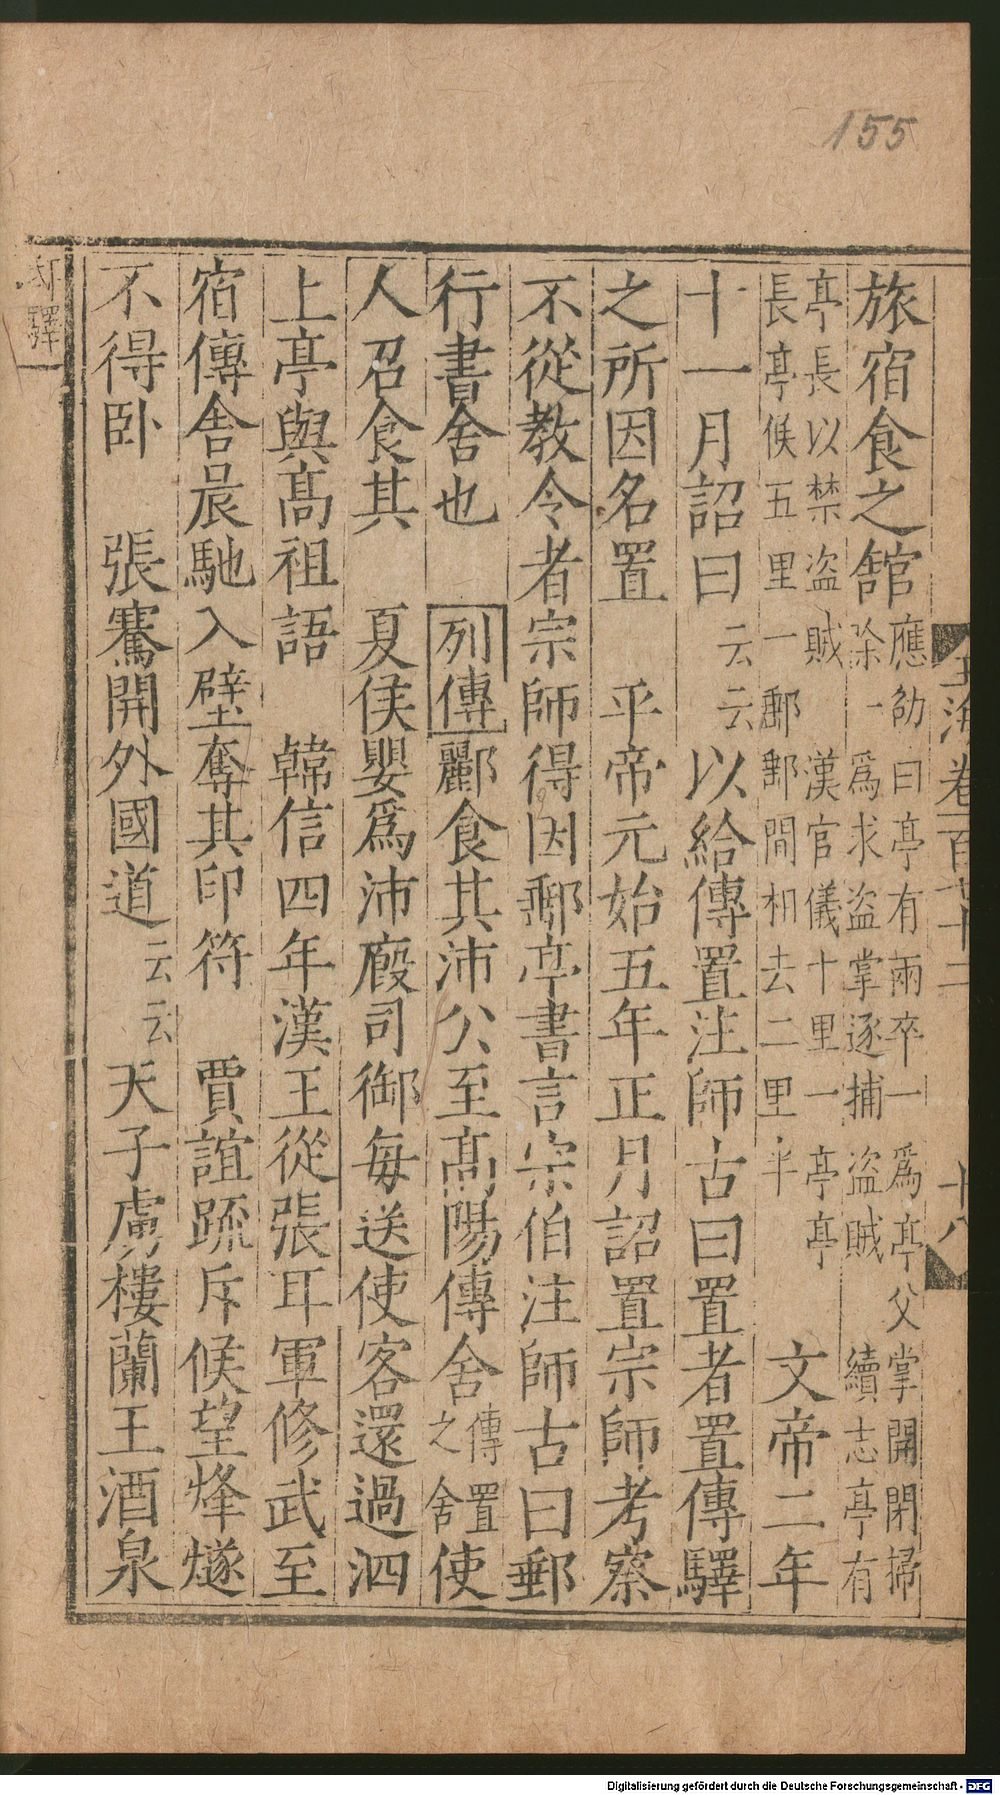 155
玉海卷一百七十二 十八
旅宿食之舘應劭曰亭有兩卒一爲亭父掌開閉掃除一爲求盜掌逐捕盜賊 續志亭有
亭長以禁盜賊 漢官儀十里一亭亭長亭候五里一郵郵間相去二里半 文帝二年
十一月詔曰云云以給傳置注師古曰置者置傳驛
之所因名置 平帝元始五年正月詔置宗師考察
不從教令者宗師得因郵亭書言宗伯注師古曰郵
行書舍也 列傳酈食其沛公至髙陽傳舍傳置之舍使
人召食其 夏侯嬰爲沛廏司御每送使客還過泗
上亭與髙祖語 韓信四年漢王從張耳軍修武至
宿傳舎晨馳入壁奪其印符 賈誼疏斥候望烽燧
不得卧 張騫開外國道云云天子虜樓蘭王酒泉
邸驛
Digitalisierung gefördert durch die Deutsche Forschungsgemeinschaft - DFG